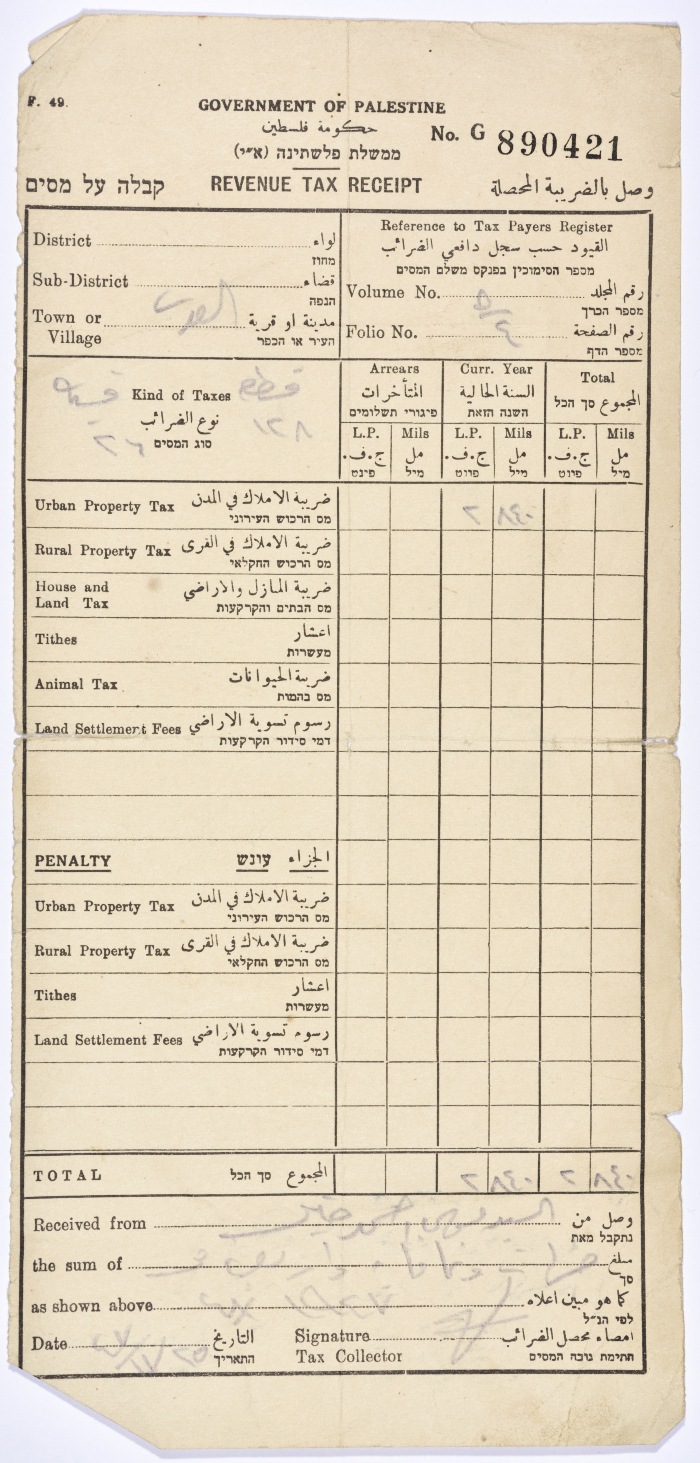 F. 49.
GOVERNMENT OF PALESTINE
حكومة فلسطين
ממשלת פלשתינה (א״י)
No. G 890421
קבלה על מסים REVENUE TAX RECEIPT وصل بالضريبة المحصلة
District لواء
מחוז
Sub-District قضاء
הנפה
القدس
Town or Village مدينة او قرية
העיר או הכפר
Reference to Tax Payers Register
القيود حسب سجل دافعي الضرائب
מספר הסימוכין בפנקס משלם המסים
Volume No. رقم المجلد
מספר הכרך
Folio No. رقم الصفحة
מספר הדף
Kind of Taxes قطعة
نوع الضرائب ١٢٨
סוג המסים ٢٦
Arrears
المتأخرات
פיגורי תשלומים
Curr. Year
السنة الحالية
השנה הזאת
Total
المجموع סך הכל
L.P. Mils L.P. Mils L.P. Mils
ج.ف. مل ج.ف. مل ج.ف. مل
פונט מיל פונט מיל פונט מיל
Urban Property Tax ضريبة الاملاك في المدن ٢ ٨٤٠
מס הרכוש העירוני
Rural Property Tax ضريبة الاملاك في القرى
מס הרכוש החקלאי
House and Land Tax ضريبة المنازل والاراضي
מס הבתים והקרקעות
Tithes اعشار
מעשרות
Animal Tax ضريبة الحيوانات
מס בהמות
Land Settlement Fees رسوم تسوية الاراضي
דמי סידור הקרקעות
PENALTY עונש الجزاء
Urban Property Tax ضريبة الاملاك في المدن
מס הרכוש העירוני
Rural Property Tax ضريبة الاملاك في القرى
מס הרכוש החקלאי
Tithes اعشار
מעשרות
Land Settlement Fees رسوم تسوية الاراضي
דמי סידור הקרקעות
TOTAL סך הכל المجموع ٢ ٨٤٠ ٢ ٨٤٠
Received from وصل من
נתקבל מאת
the sum of مبلغ
סך
as shown above كما هو مبين اعلاه
לפי הנ״ל
Date التاريخ
התאריך
Signature امضاء محصل الضرائب
Tax Collector חתימת גובה המסים